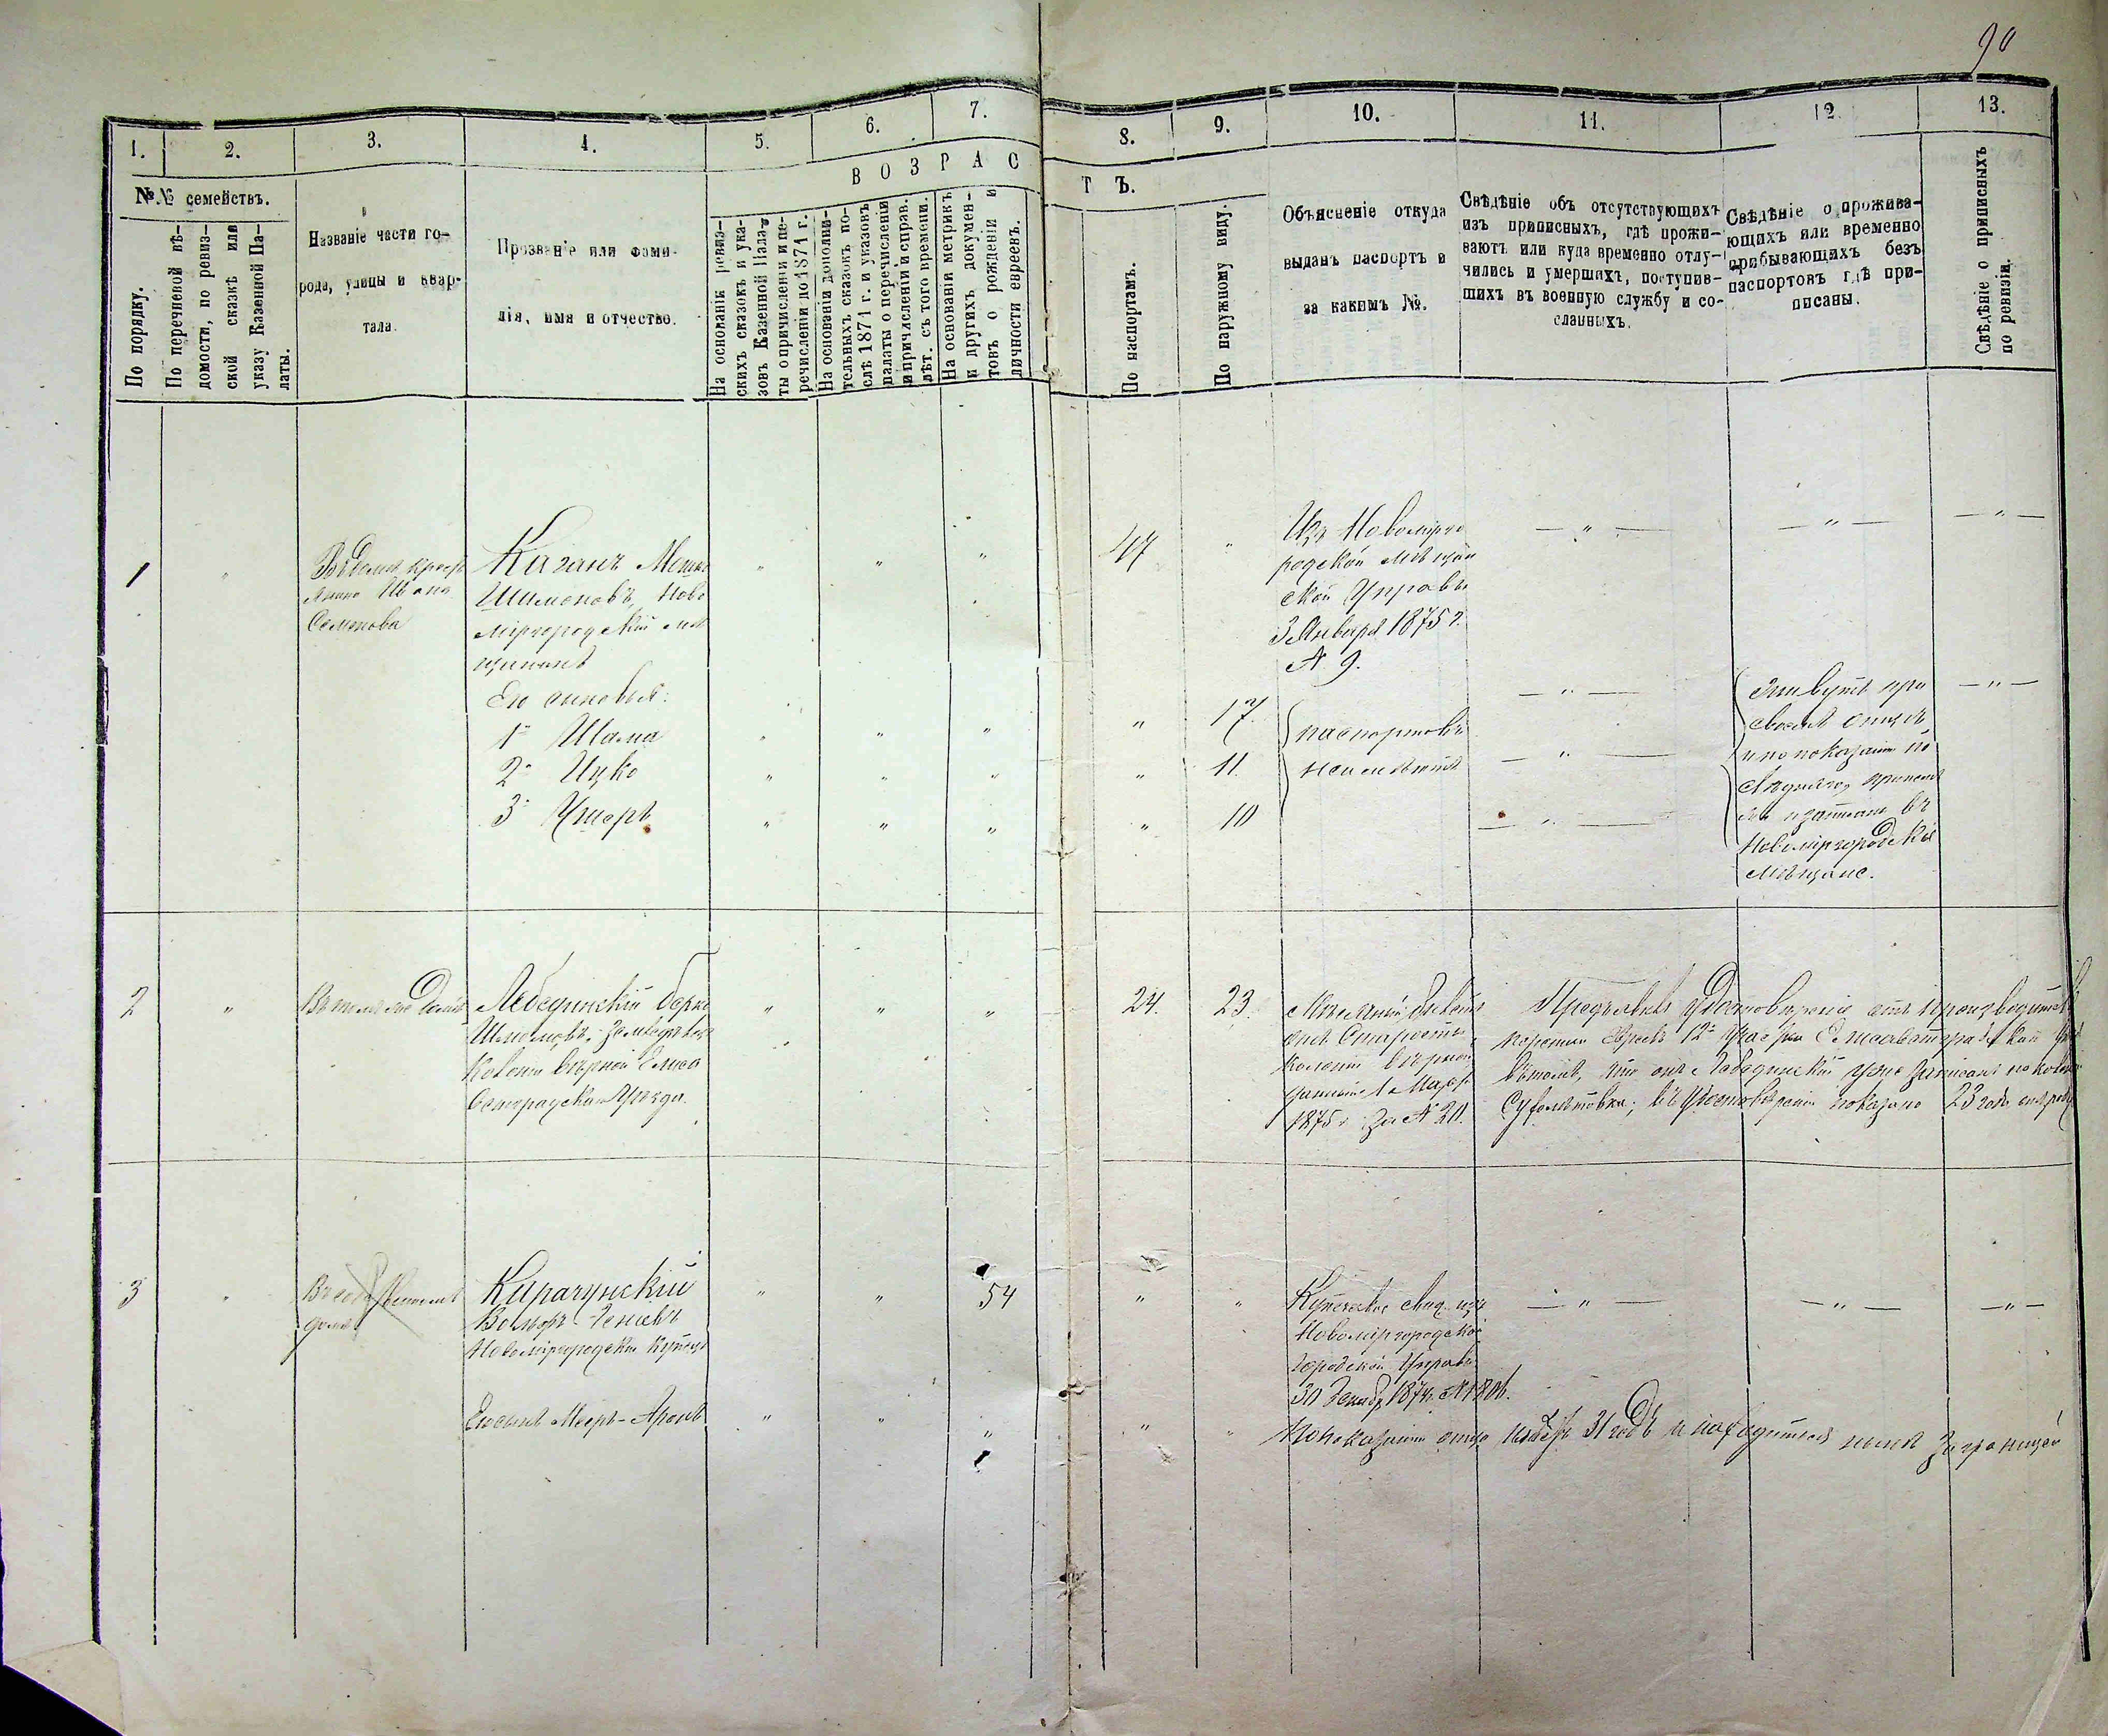 90
1.
2.
3.
4.
5.
6.
7.
8.
9.
10.
11.
12.
13.
№№ семействъ.
По порядку.
По перечневой вѣ-
домости, по ревиз-
ской сказкѣ или
указу Казенной Па-
латы.
Названіе части го-
рода, улицы и квар-
тала.
Прозваніе или фами-
лія, имя и отчество.
ВОЗРАС
ТЪ.
На основаніи ревиз-
скихъ сказокъ и ука-
зовъ Казенной Пала-
ты о причисленіи и пе-
речисленіи до 1871 г.
На основаніи дополни-
тельныхъ сказокъ по-
слѣ 1871 г. и указовъ
палаты о перечисленіи
и причисленіи и справ.
лѣт. съ того времени.
На основаніи метрикъ
и другихъ докумен-
товъ о рожденіи и
личности евреевъ.
По паспортамъ.
По наружному виду.
Объясненіе откуда
выданъ паспортъ и
за какимъ №.
Свѣдѣніе объ отсутствующихъ
изъ приписныхъ, гдѣ прожи-
ваютъ или куда временно отлу-
чились и умершихъ, поступив-
шихъ въ военную службу и со-
сланныхъ.
Свѣдѣніе о прожива-
ющихъ или временно
прибывающихъ безъ
паспортовъ гдѣ при-
писаны.
Свѣдѣніе о приписныхъ
по ревизіи.
1
"
Въ домѣ кресть
янина Ивана
Семенова
Каганъ Мошко
Шимоновъ, Ново
міргородскій мѣ
щанинъ
"
"
"
47
"
Изъ Новомірго
родской мѣщан
ской Управы
3 Января 1875 г.
№ 9.
— " —
— " —
— " —
Его сыновья:
1й Шама
"
"
"
"
17.
паспортовъ
— " —
2й Ицко
"
"
"
"
11.
неимѣютъ
— " —
3й Ушеръ
"
"
"
"
10
— " —
живутъ при
своемъ отцѣ
и по показанію по
слѣдняго,
записаны въ
Новоміргородскіе
мѣщане.
— " —
2
"
домѣ
Лебединскій Берко
Шмулевъ, земледѣлецъ
Елиса
ветградскаго Уѣзда.
"
"
"
24.
23.
Старосты
колоніи
1875 г за № 20.
Предъявилъ удостовѣреніе отъ производителя
переписи Евреевъ 12го Участка Елисаветградскаго
въ томъ, что онъ Лебединскій уже записанъ по колоніи
въ удостовѣреніи показано 23 года
3
"
Въ собственномъ
домѣ
Карачунскій
Вольфъ
Новоміргородскій купецъ
"
"
54
"
"
Купеческое свид. изъ
Новоміргородской
Городской Управы
30 Декабр. 1874 г.
— " —
— " —
— " —
Его сынъ Мееръ-Аронъ
"
"
"
"
"
По показанію отца имѣетъ 31 годъ и находится нынѣ за границей